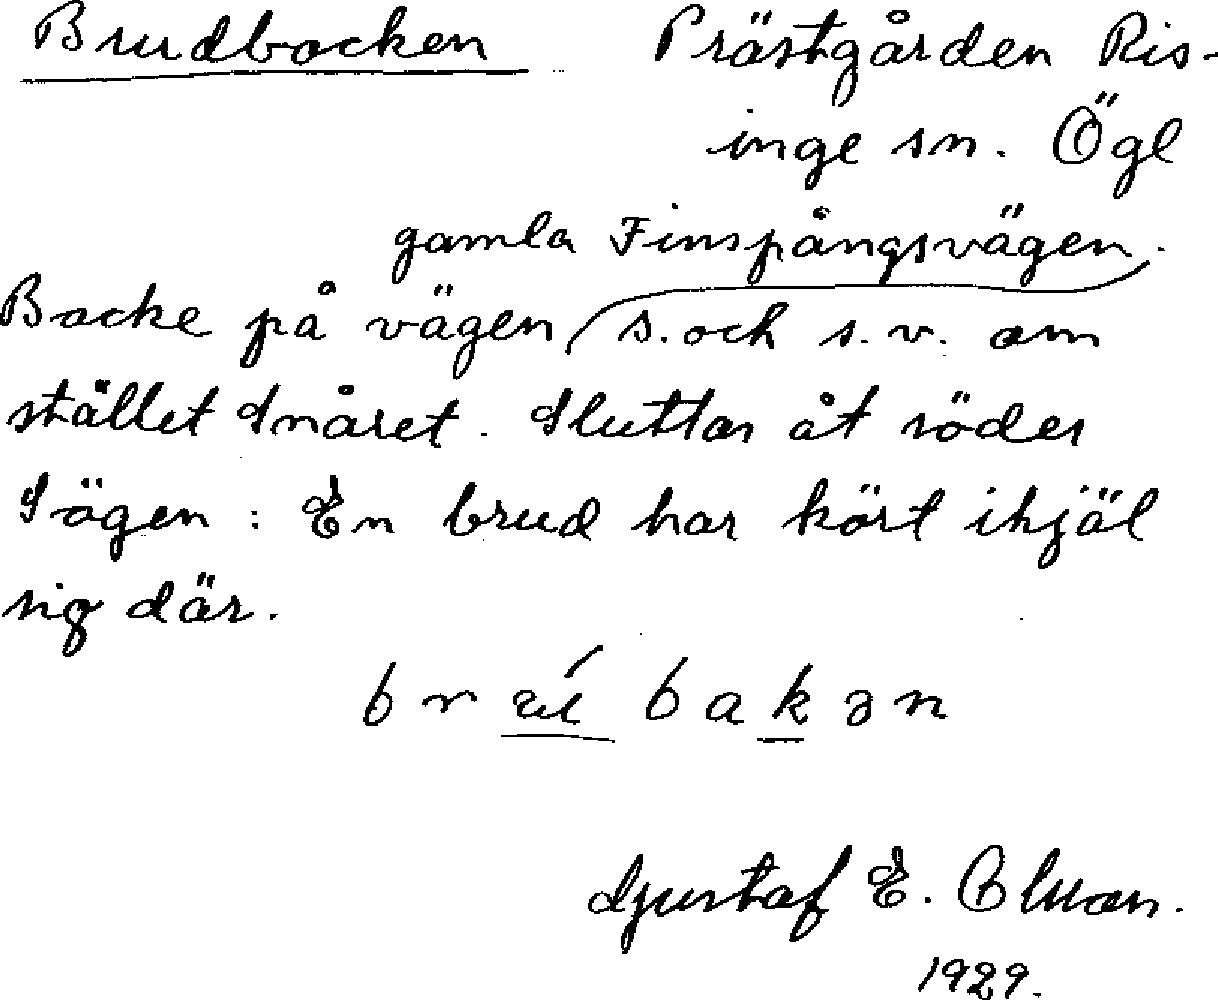 Brudbacken Prästgården Ris-
inge sn. Ögl
gamla Finspångsvägen.
Backe på vägen s. och s. v. om
stället Snåret. Sluttar åt söder
Sägen: En brud har kört ihjäl
sig där.
bakən
Gustaf E.
1929.